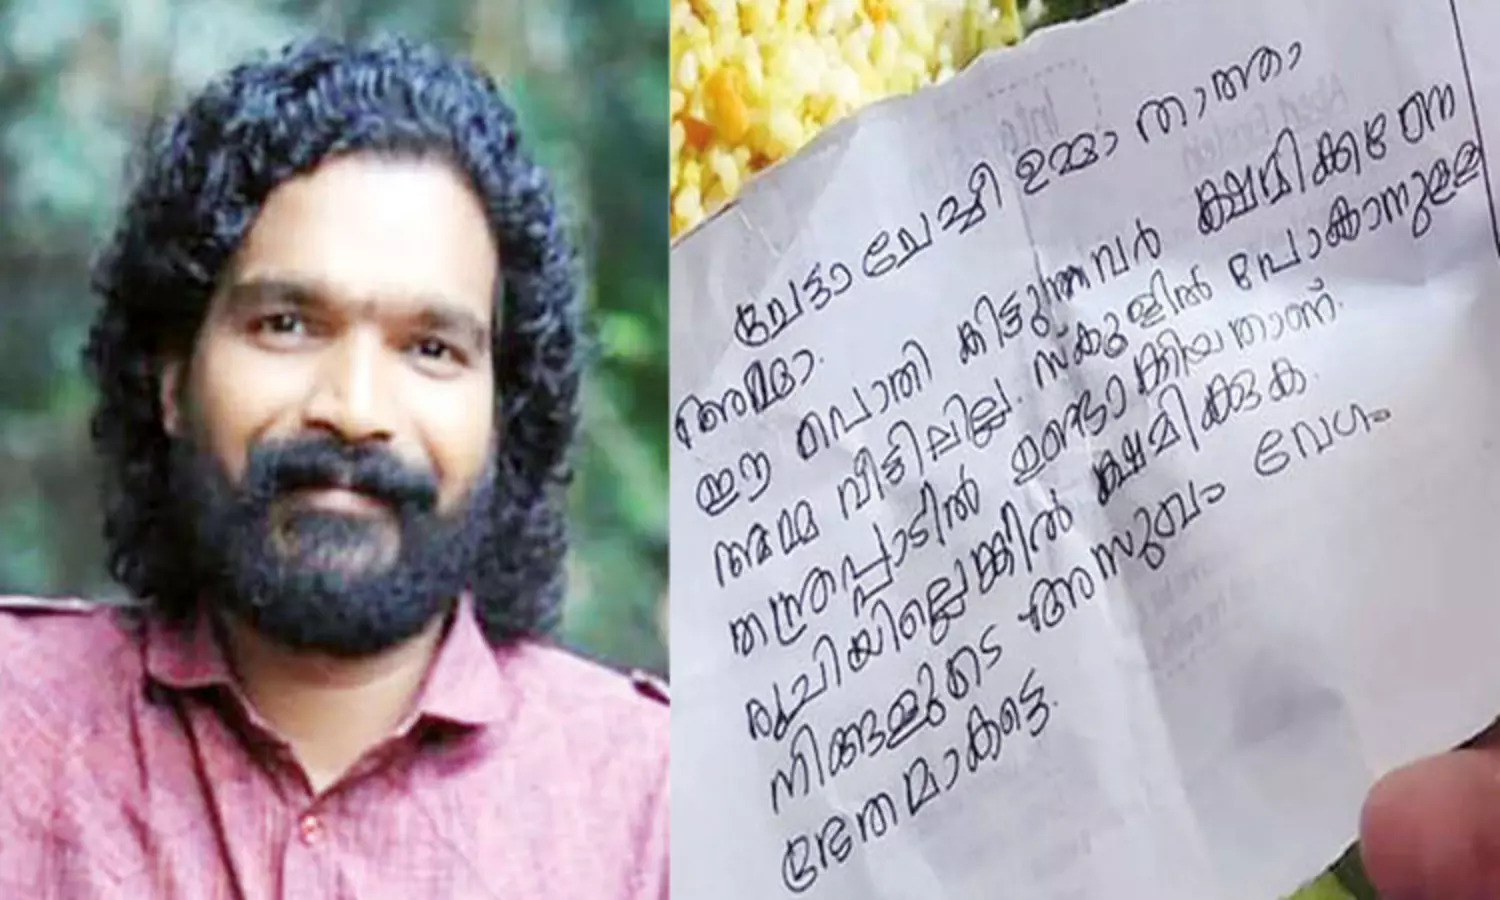 ചേട്ടാ ചേച്ചി ഉമ്മാ താത്താ
അമ്മാ.
ഈ പൊതി കിട്ടുന്നവർ ക്ഷമിക്കണേ
അമ്മ വീട്ടിലില്ല. സ്കൂളിൽ പോകാനുള്ള
തന്ത്രപ്പാടിൽ ഉണ്ടാക്കിയതാണ്.
രുചിയില്ലെങ്കിൽ ക്ഷമിക്കുക.
നിങ്ങളുടെ അസുഖം വേഗം
ഭേദമാകട്ടെ.